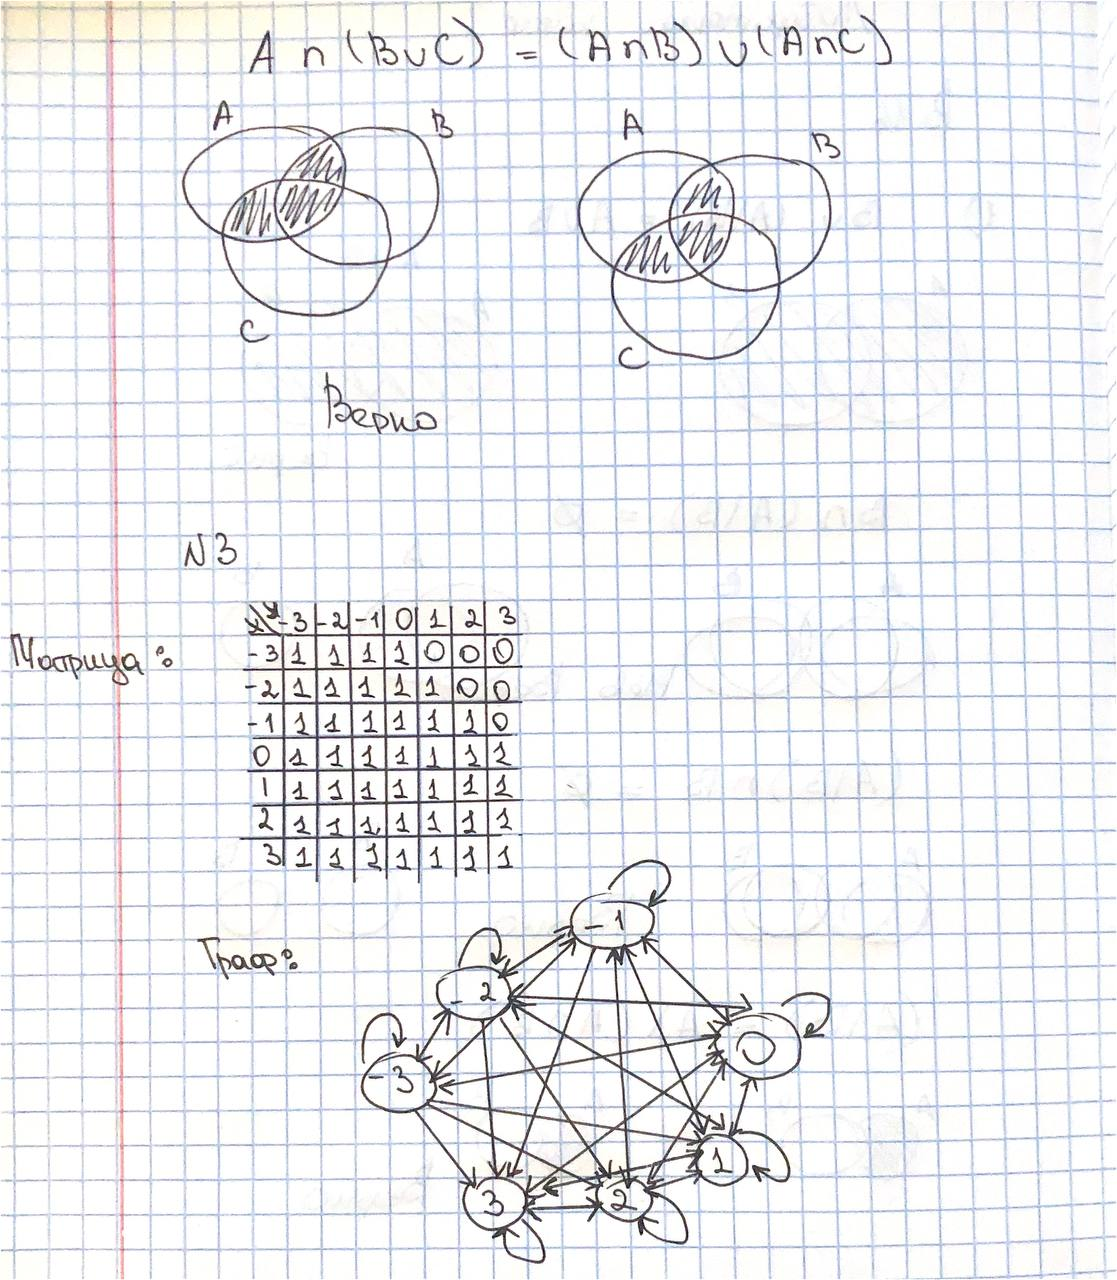 A ∩ (B∪C) = (A∩B) ∪ (A∩C)
A B A B
C C
Верно
N3
Матрица:
-3 -2 -1 0 1 2 3
-3 1 1 1 1 0 0 0
-2 1 1 1 1 1 0 0
-1 1 1 1 1 1 1 0
0 1 1 1 1 1 1 1
1 1 1 1 1 1 1 1
2 1 1 1 1 1 1 1
3 1 1 1 1 1 1 1
Граф:
-1
-2
0
-3
1
3 2